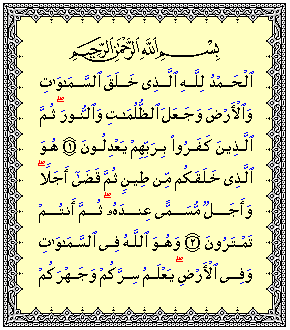 بِسْمِ ٱللَّهِ ٱلرَّحْمَٰنِ ٱلرَّحِيمِ
ٱلْحَمْدُ لِلَّهِ ٱلَّذِى خَلَقَ ٱلسَّمَٰوَٰتِ
وَٱلْأَرْضَ وَجَعَلَ ٱلظُّلُمَٰتِ وَٱلنُّورَ ۖ ثُمَّ
ٱلَّذِينَ كَفَرُوا۟ بِرَبِّهِمْ يَعْدِلُونَ ﴿١﴾ هُوَ
ٱلَّذِى خَلَقَكُم مِّن طِينٍ ثُمَّ قَضَىٰٓ أَجَلًا ۖ
وَأَجَلٌ مُّسَمًّى عِندَهُۥ ۖ ثُمَّ أَنتُمْ
تَمْتَرُونَ ﴿٢﴾ وَهُوَ ٱللَّهُ فِى ٱلسَّمَٰوَٰتِ
وَفِى ٱلْأَرْضِ ۖ يَعْلَمُ سِرَّكُمْ وَجَهْرَكُمْ